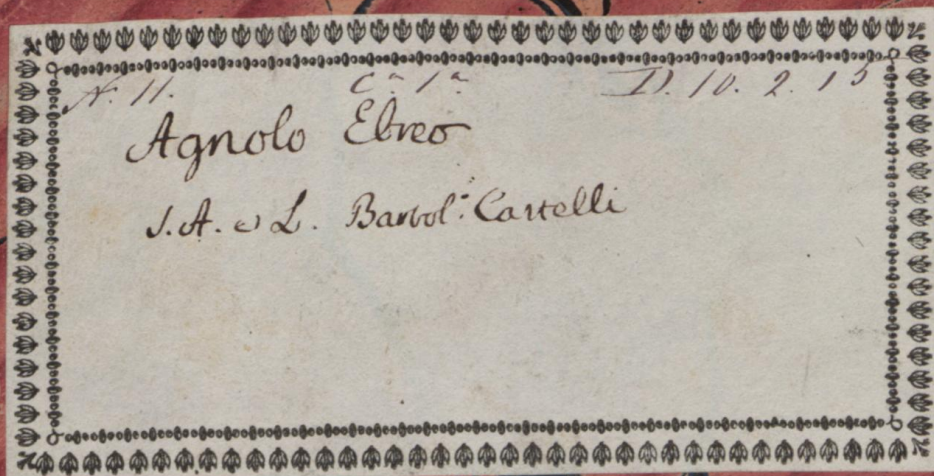 N. 11. C.ª 1.ª D. 10. 2. 15
Agnolo Ebreo
S. A. e L. Bartol.º Castelli